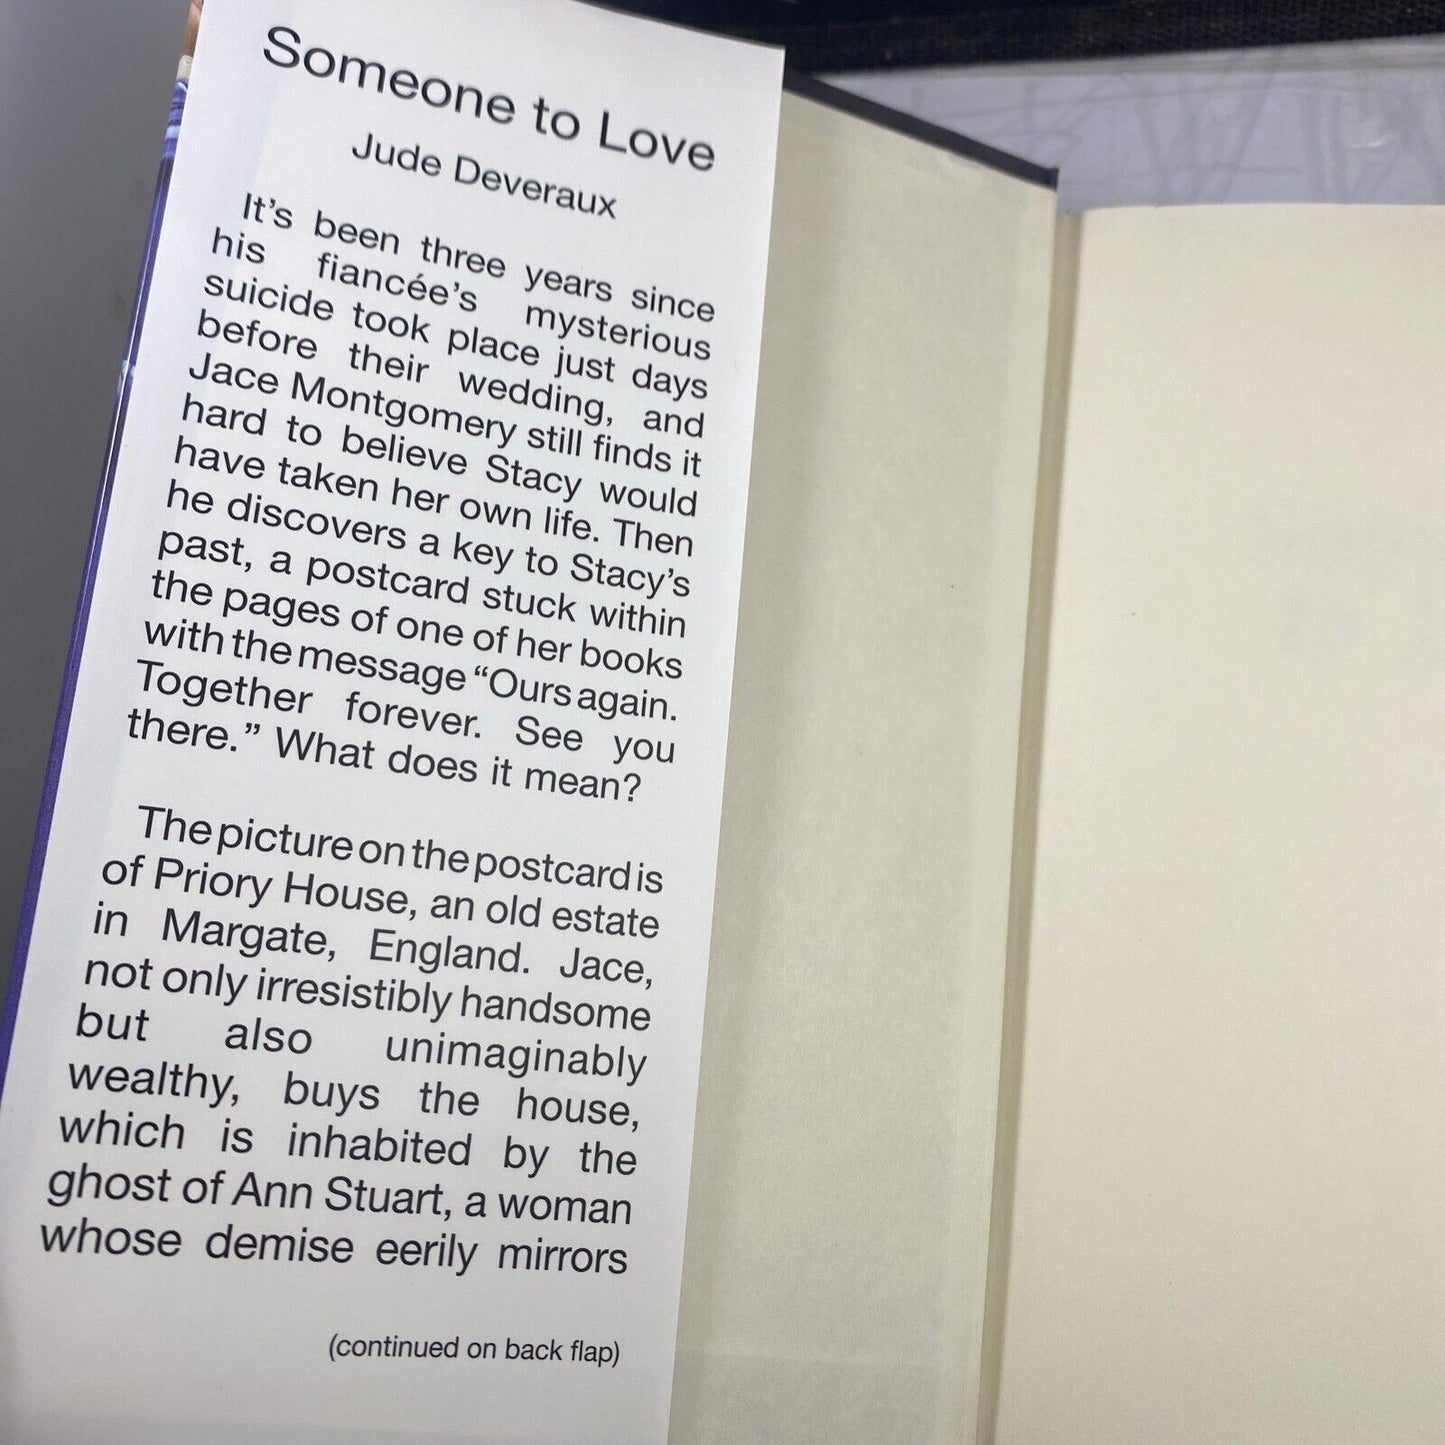 Someone to Love
Jude Deveraux
It’s been three years since
his fiancée’s mysterious
suicide took place just days
before their wedding, and
Jace Montgomery still finds it
hard to believe Stacy would
have taken her own life. Then
he discovers a key to Stacy’s
past, a postcard stuck within
the pages of one of her books
with the message “Ours again.
Together forever. See you
there.” What does it mean?
The picture on the postcard is
of Priory House, an old estate
in Margate, England. Jace,
not only irresistibly handsome
but also unimaginably
wealthy, buys the house,
which is inhabited by the
ghost of Ann Stuart, a woman
whose demise eerily mirrors
(continued on back flap)